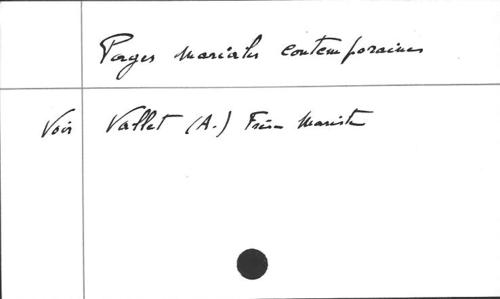 Pages mariales contemporaines
Voir Vallet (A.) Frère Mariste